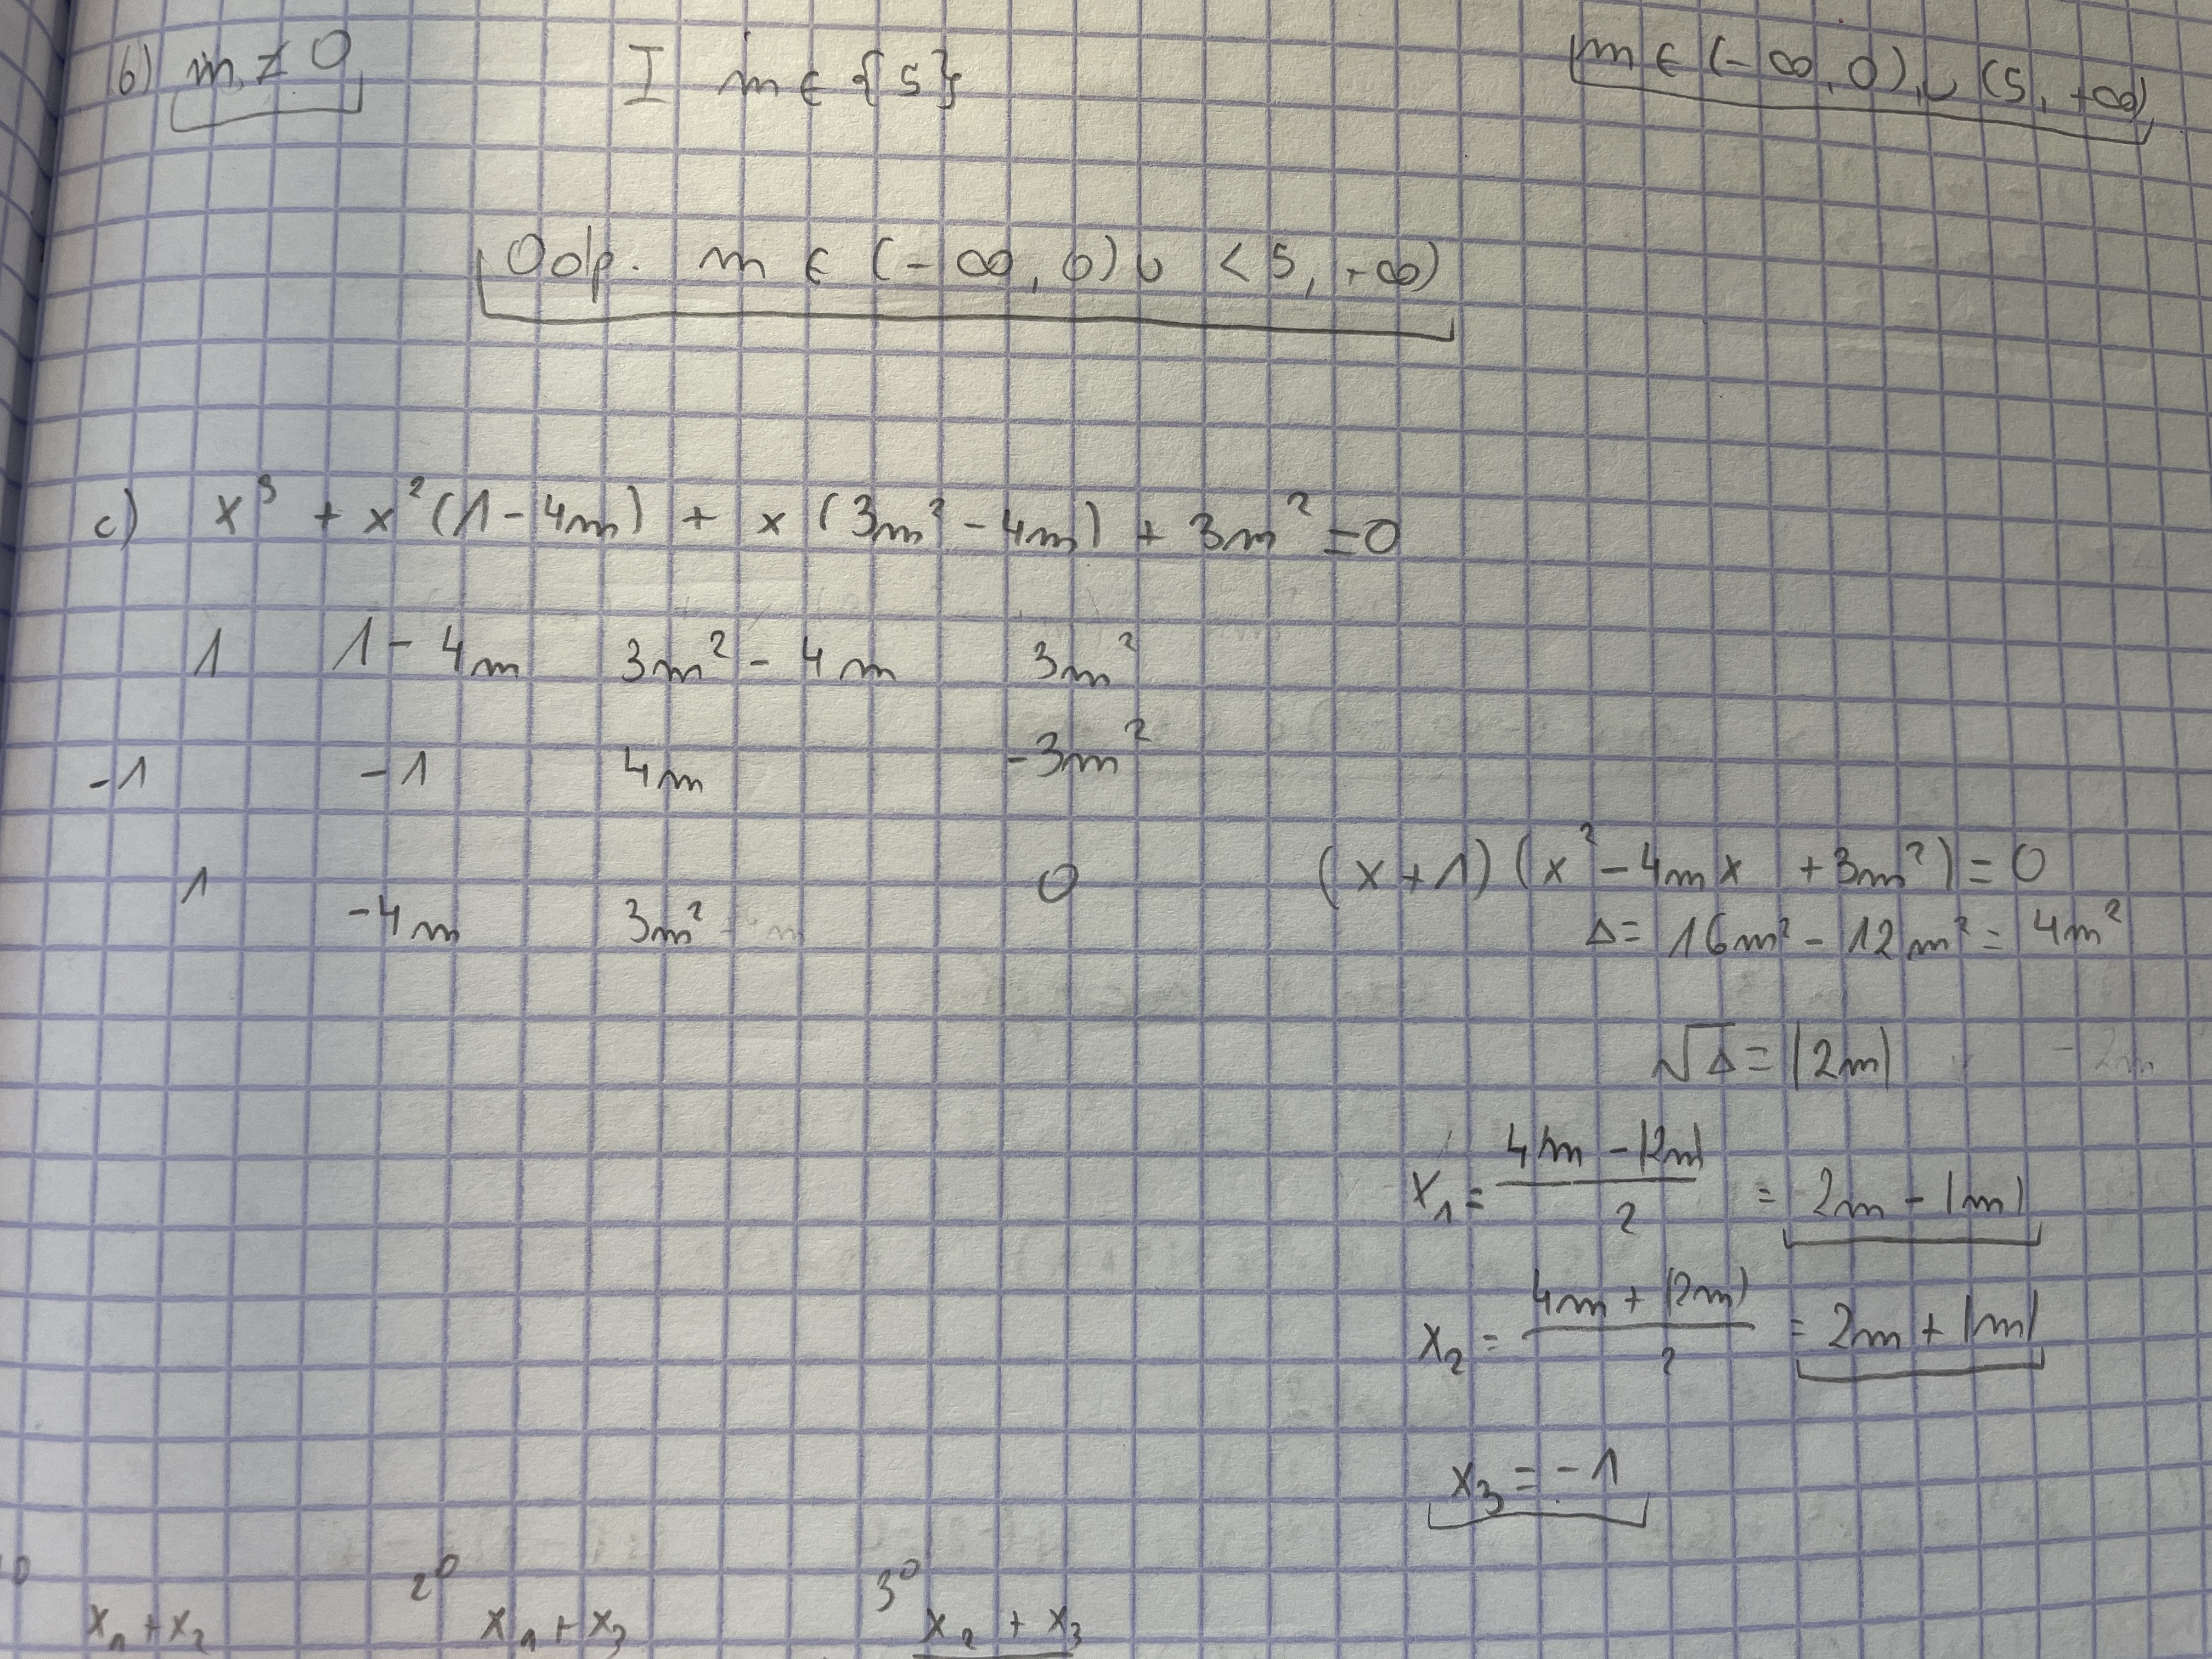 b) m ≠ 0 I m ∈ {5} m ∈ (-∞, 0) ∪ (5, +∞)
Odp. m ∈ (-∞, 0) ∪ <5, +∞)
c) x³ + x²(1-4m) + x(3m²-4m) + 3m² = 0
1 1-4m 3m²-4m 3m²
-1 -1 4m -3m²
1 -4m 3m² 0 (x+1)(x²-4mx+3m²)=0
Δ= 16m² - 12m² = 4m²
√Δ = |2m| -2m
x₁ = (4m - |2m|)/2 = 2m - |m|
x₂ = (4m + |2m|)/2 = 2m + |m|
x₃ = -1
2⁰ 3⁰
x₁+x₂ x₁+x₃ x₂+x₃